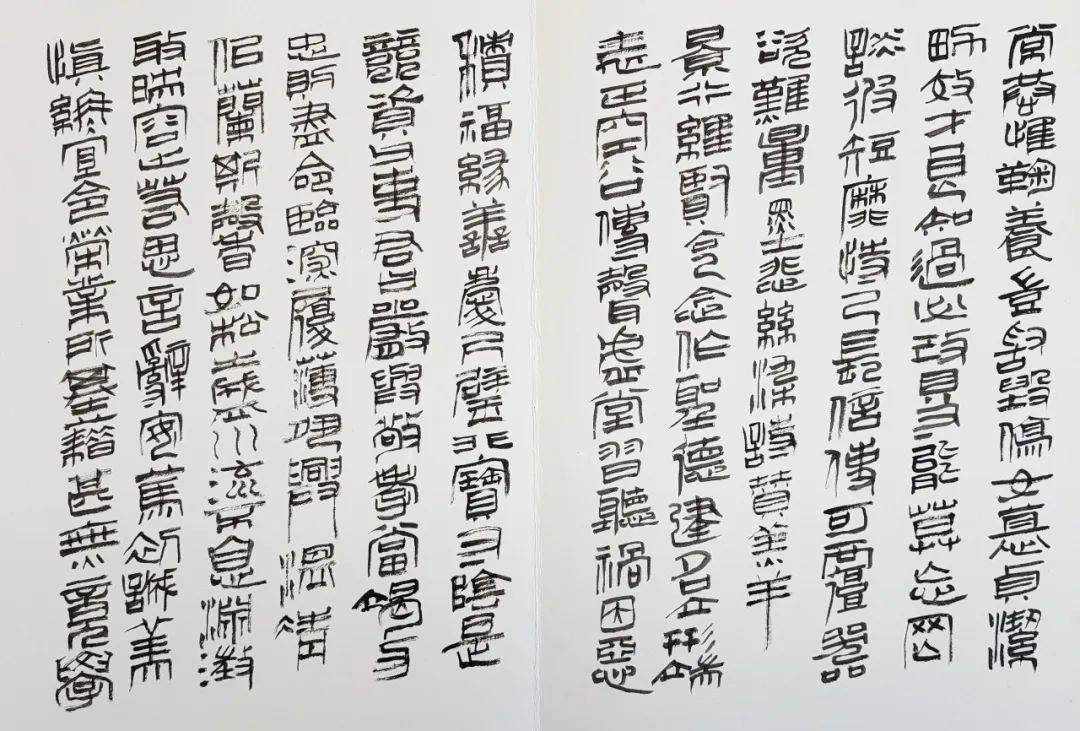 常恭惟鞠養豈敢毀傷女慕貞潔
男效才良知過必改得能莫忘罔
談彼短靡恃己長信使可覆器
欲難量墨悲絲染詩贊羔羊
景行維賢克念作聖德建名立形端
表正空谷傳聲虛堂習聽禍因惡
積福緣善慶尺璧非寶寸陰是
競資父事君曰嚴與敬孝當竭力
忠則盡命臨深履薄夙興溫凊
似蘭斯馨如松之盛川流不息淵澄
取映容止若思言辭安定篤初誠美
慎終宜令榮業所基籍甚無竟學